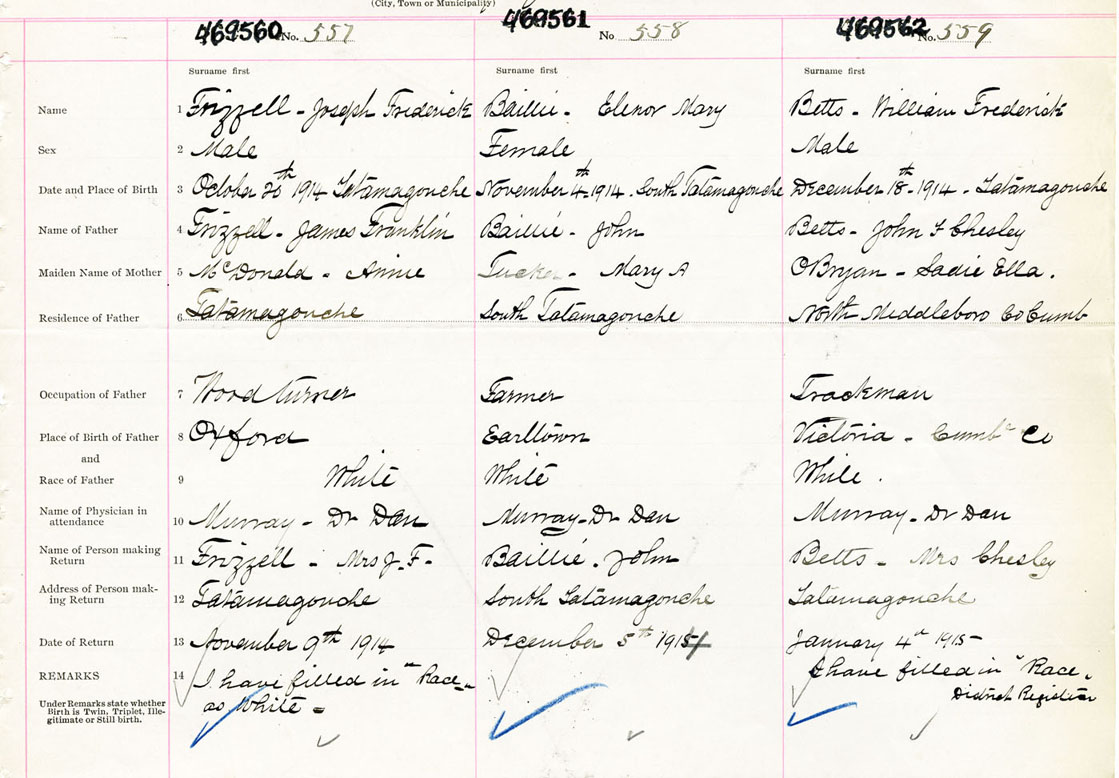 (City, Town or Municipality)
469560 No. 557 469561 No 558 469562 No. 559
Surname first Surname first Surname first
Name 1 Frizzell - Joseph Frederick Baillie - Elenor Mary Betts - William Frederick
Sex 2 Male Female Male
Date and Place of Birth 3 October 20th 1914 Tatamagouche November 4th 1914. South Tatamagouche December 18th 1914. Tatamagouche
Name of Father 4 Frizzell - James Franklin Baillie - John Betts - John F Chesley
Maiden Name of Mother 5 McDonald - Annie Tucker - Mary A OBryan - Sadie Ella.
Residence of Father 6 Tatamagouche South Tatamagouche North Middleboro Co Cumb
Occupation of Father 7 Wood turner Farmer Trackman
Place of Birth of Father 8 Oxford Earltown Victoria - Cumb Co
and
Race of Father 9 White White White.
Name of Physician in attendance 10 Murray - Dr Dan Murray - Dr Dan Murray - Dr Dan
Name of Person making Return 11 Frizzell - Mrs J. F. Baillie. John Betts - Mrs Chesley
Address of Person making Return 12 Tatamagouche South Tatamagouche Tatamagouche
Date of Return 13 November 9th 1914 December 5th 1914 January 4th 1915
REMARKS 14 I have filled in "Race" I have filled in "Race"
as White = District Registrar
Under Remarks state whether
Birth is Twin, Triplet, Ille-
gitimate or Still birth.